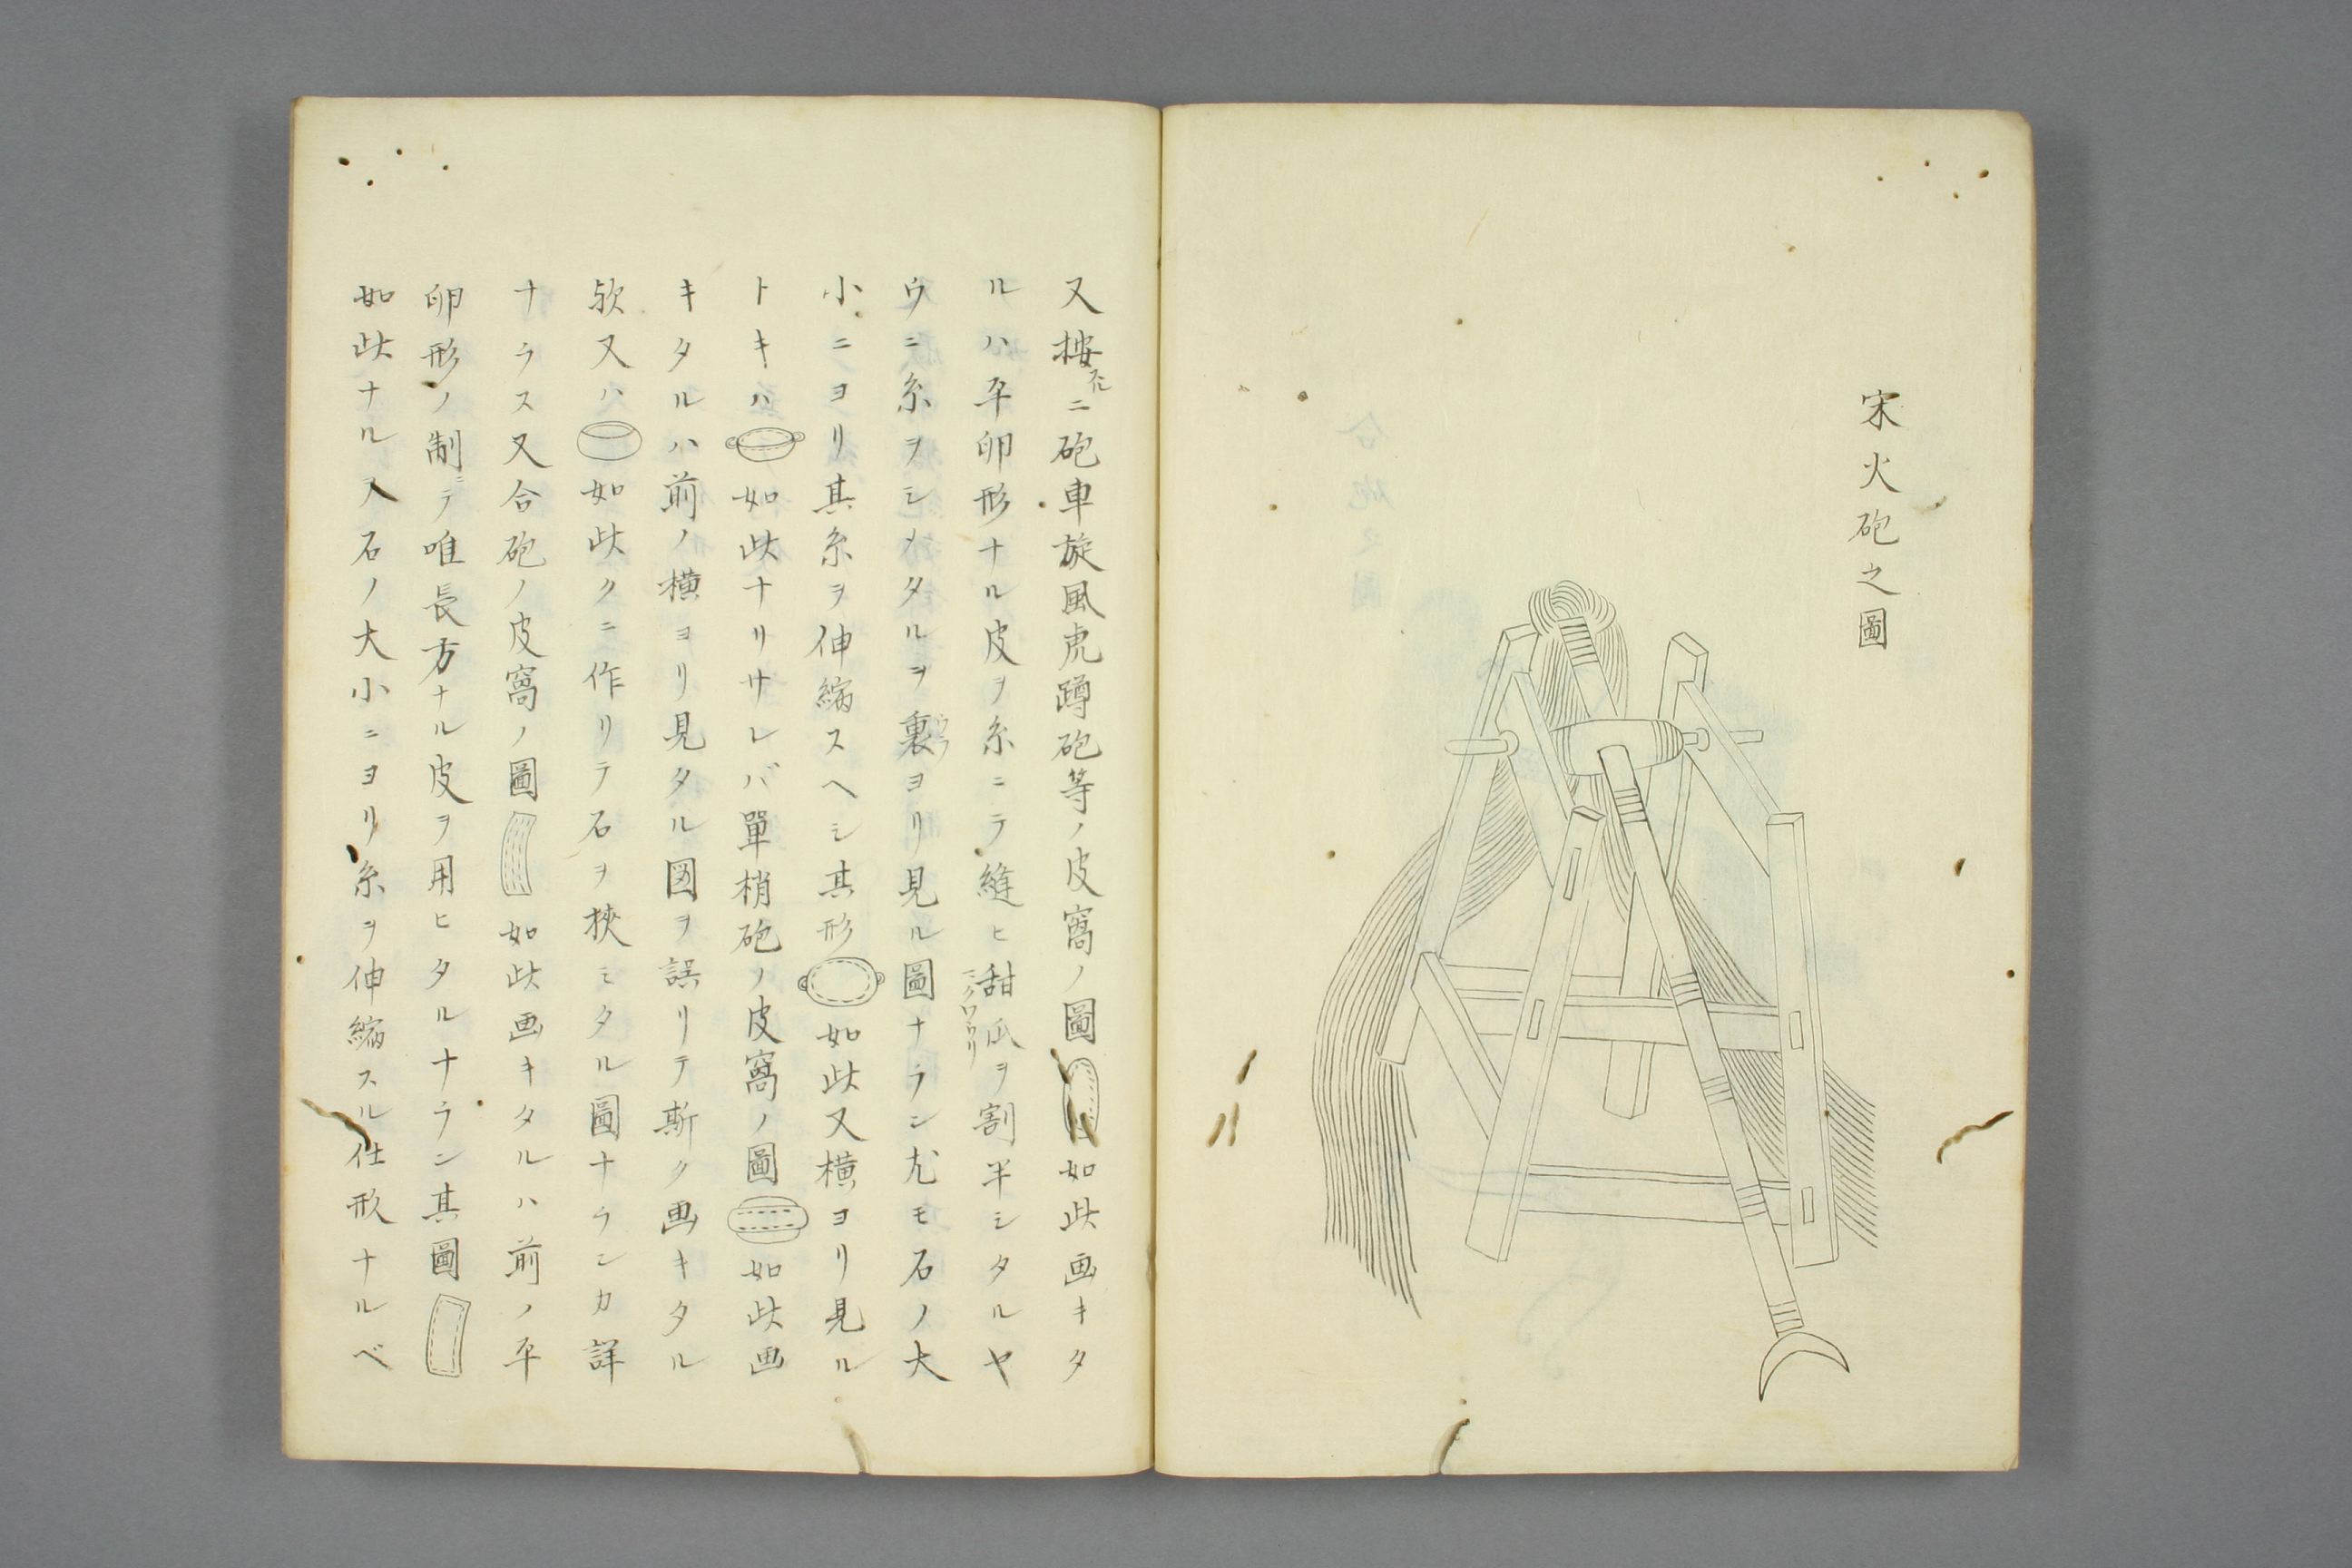 宋火砲之圖
又按スルニ砲車旋風虎蹲砲等ノ皮窩ノ圖如此画キタ
ルハ平卵形ナル皮ヲ糸ニテ縫ヒ甜瓜ヲ割半シタルヤ
ウニ糸ヲシメタルヲ裏ヨリ見ル圖ナラン尤モ石ノ大
小ニヨリ其糸ヲ伸縮スヘシ其形如此又横ヨリ見ル
トキハ如此ナリサレバ單梢砲ノ皮窩ノ圖如此画
キタルハ前ノ横ヨリ見タル図ヲ誤リテ斯ク画キタル
欤又ハ如此クニ作リテ石ヲ挾ミタル圖ナランカ詳
ナラス又合砲ノ皮窩ノ圖如此画キタルハ前ノ平
卵形ノ制ニテ唯長方ナル皮ヲ用ヒタルナラン其圖
如此ナル又石ノ大小ニヨリ糸ヲ伸縮スル仕形ナルベ